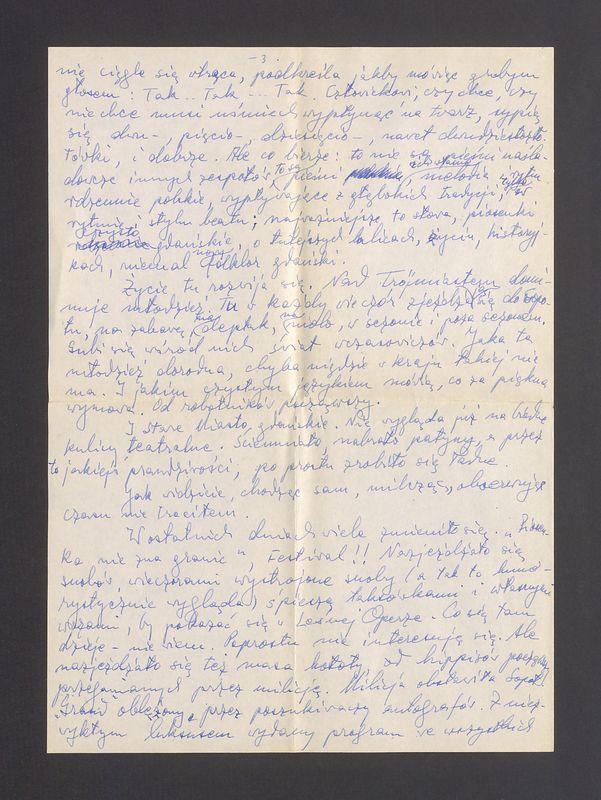 - 3 -
nie ciągle się wtrąca, podkreśla jakby mówiąc grubym
głosem: Tak... Tak ... Tak. Człowiekowi, czy chce, czy
nie chce musi uśmiech wypłynąć na twarz, sypnie
się dwu-, pięcio-, dziesięcio-, nawet dwudziestozło-
tówki, i dobrze. Ale co bierze: to nie są pieśni naśla-
dowcze innych zespołów, to są pieśni melodia
rdzennie polskie, wypływające z głębokich tradycji, tylko w rytm
rytmie i stylu beatu; najważniejsze to słowa, piosenki
czysto gdańskie, o tutejszych ulicach, życiu, historyj-
kach, niemal nowy folklor gdański.
Życie tu rozwija się. Nad Trójmiastem domi-
nuje młodzież. Tu w każdy wieczór zjeżdża się do Sopo-
tu, na zabawę, na deptak, na molo, w sezonie i poza sezonem.
Gubi się wśród nich świat wczasowiczów. Jaka ta
młodzież dorodna, chyba nigdzie w kraju takiej nie
ma. I jakim czystym językiem mówią, co za piękna
wymowa. Od robotników począwszy.
I stare Miasto gdańskie. Nie wygląda już na świeże
kulisy teatralne. Ściemniało, nabrało patyny, a przez
to jakiejś prawdziwości, po prostu zrobiło się ładne.
Jak widzicie, chodząc sam, milcząc, obserwując
czasu nie traciłem.
W ostatnich dniach wiele zmieniło się. „Piosen-
ka nie zna granic", Festival!! Nazjeżdżało się
snobów, wieczorami wystrojone snoby (a tak to humo-
rystycznie wygląda) spieszą taksówkami i własnymi
wozami, by pokazać się w Leśnej Operze. Co się tam
dzieje - nie wiem. Poprostu nie interesują się. Ale
nazjeżdżało się też masa hołoty od hippisów
przeganianych przez milicję. Milicja obstawiła Sopot.
"Grand" oblężony przez poszukiwaczy autografów. Z niez-
wykłym luksusem wydany program we wszystkich